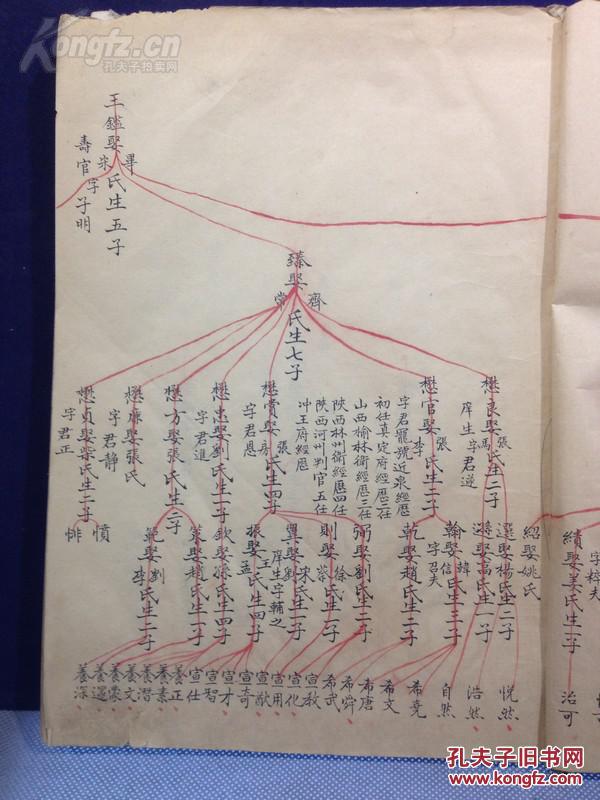 Kongfz.cn
孔夫子拍卖网
王鑑娶
畢
宋
氏生五子
壽官字子明
臻娶
齊
常
氏生七子
懋良娶
張
馮
氏生二子
庠生字君逆
懋官娶
張
李
氏生二子
字君寵號近泉經歷
初任真定府經歷二任
山西榆林衛經歷三任
陝西林州衛經歷四任
陝西河州判官五任
冲王府經歷
懋賞娶
張
房
氏生四子
字君恩
懋忠娶劉氏生二子
字君進
懋方娶張氏生二子
懋廉娶張氏
字君靜
懋貞娶
氏生二子
字君正
績娶姜氏生一子
字粹夫
紹娶姚氏
選娶楊氏生二子
遴娶高氏生一子
翰娶
韓
信
氏生三子
字召夫
乾娶趙氏生二子
弼娶劉氏生二子
則娶
徐
蔡
氏生一子
翼娶
宋
劉
氏生一子
庠生字輔之
振娶
王
孟
氏生四子
欽娶孫氏生四子
策娶趙氏生一子
範娶
劉
李
氏生二子
憤
悱
治可
悅然
浩然
自然
希堯
希文
希唐
希舜
希武
宣教
宣化
宣用
宣猷
宣奇
宣才
宣智
宣仕
養正
養素
養潛
養文
養蒙
養邃
養深
孔夫子旧书网
www.kongfz.com